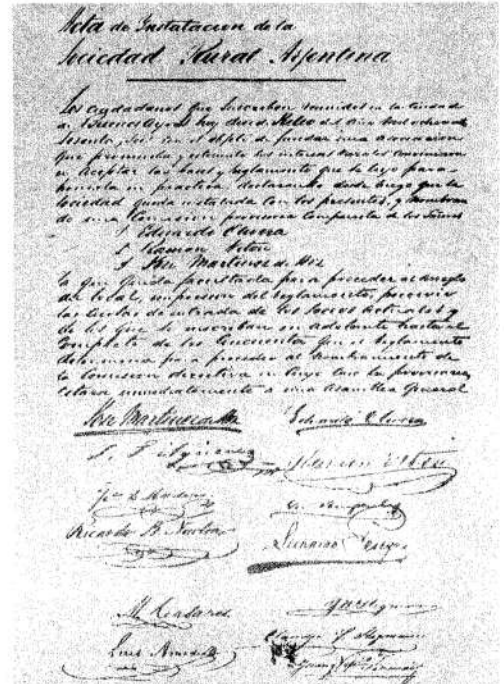 Acta de Instalacion de la
Sociedad Rural Argentina
Los ciudadanos que suscriben reunidos en la ciudad
de Buenos Ayres hoy diez de Julio del año mil ochocientos
sesenta y seis con el objeto de fundar una asociacion
que promueba y estimule los intereses rurales convinieron
en aceptar las bases y reglamento que se leyó para
ponerla en practica declarando desde luego que la
sociedad queda instalada con los presentes, y nombran
de una Comision provisoria compuesta de los Señores
1 Eduardo Olivera
2 Ramon Viton
3 José Martinez de Hoz
la que queda facultada para proceder al arreglo
del local, impresion del reglamento, percivir
las cuotas de entrada de los socios actuales y
de los que se inscriban en adelante hasta el
completo de los cincuenta que el reglamento
determina para proceder al nombramiento de
la comision directiva en cuyo caso la provisoria
citara inmediatamente a una asamblea general
José Martinez de Hoz
Eduardo Olivera
Ramon Viton
Ricardo B Newton
Leonardo Pereyra
M. Casares
Luis Amadeo
Claudio F Stegmann